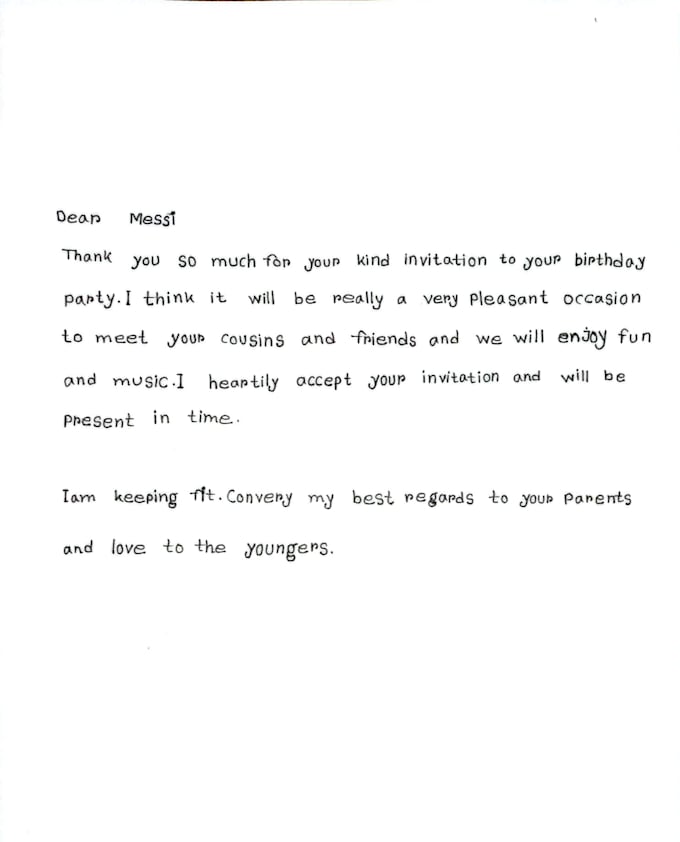 Dear Messi
Thank you so much for your kind invitation to your birthday
party. I think it will be really a very pleasant occasion
to meet your cousins and friends and we will enjoy fun
and music. I heartily accept your invitation and will be
present in time.
I am keeping fit. Convery my best regards to your parents
and love to the youngers.